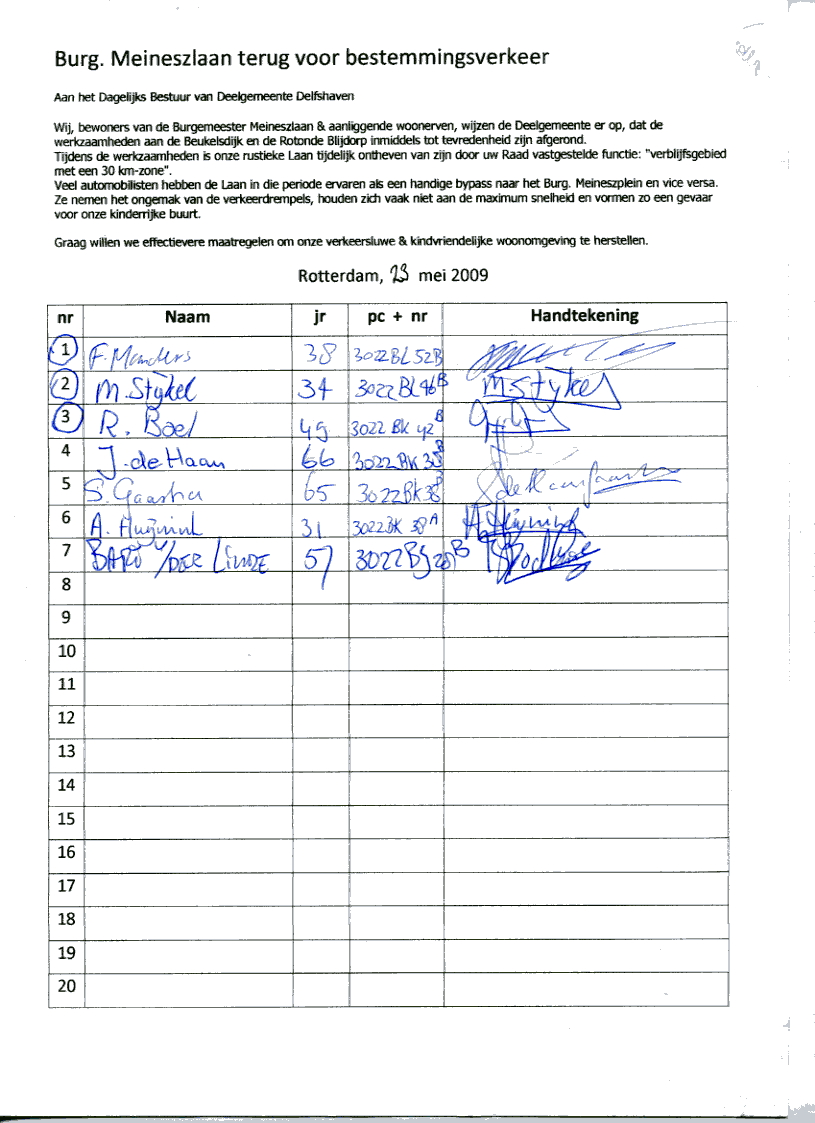 Burg. Meineszlaan terug voor bestemmingsverkeer
Aan het Dagelijks Bestuur van Deelgemeente Delfshaven
Wij, bewoners van de Burgemeester Meineszlaan & aanliggende woonerven, wijzen de Deelgemeente er op, dat de
werkzaamheden aan de Beukelsdijk en de Rotonde Blijdorp inmiddels tot tevredenheid zijn afgerond.
Tijdens de werkzaamheden is onze rustieke Laan tijdelijk ontheven van zijn door uw Raad vastgestelde functie: "verblijfsgebied
met een 30 km-zone".
Veel automobilisten hebben de Laan in die periode ervaren als een handige bypass naar het Burg. Meineszplein en vice versa.
Ze nemen het ongemak van de verkeerdrempels, houden zich vaak niet aan de maximum snelheid en vormen zo een gevaar
voor onze kinderrijke buurt.
Graag willen we effectievere maatregelen om onze verkeersluwe & kindvriendelijke woonomgeving te herstellen.
Rotterdam, 23 mei 2009
nr Naam jr pc + nr Handtekening
1 F. Manders 38 3022BL 52B
2 M. Stykel 34 3022 BL 46B M Stykel
3 R. Boel 49 3022 BK 42B
4 J. de Haan 66 3022 BK 38B
5 S. Gaastra 65 3022 BK 38B
6 A. Huijnink 31 3022BK 38A A. Huijnink
7 BARO V/DER LINDE 57 3022 BJ 28B
8
9
10
11
12
13
14
15
16
17
18
19
20